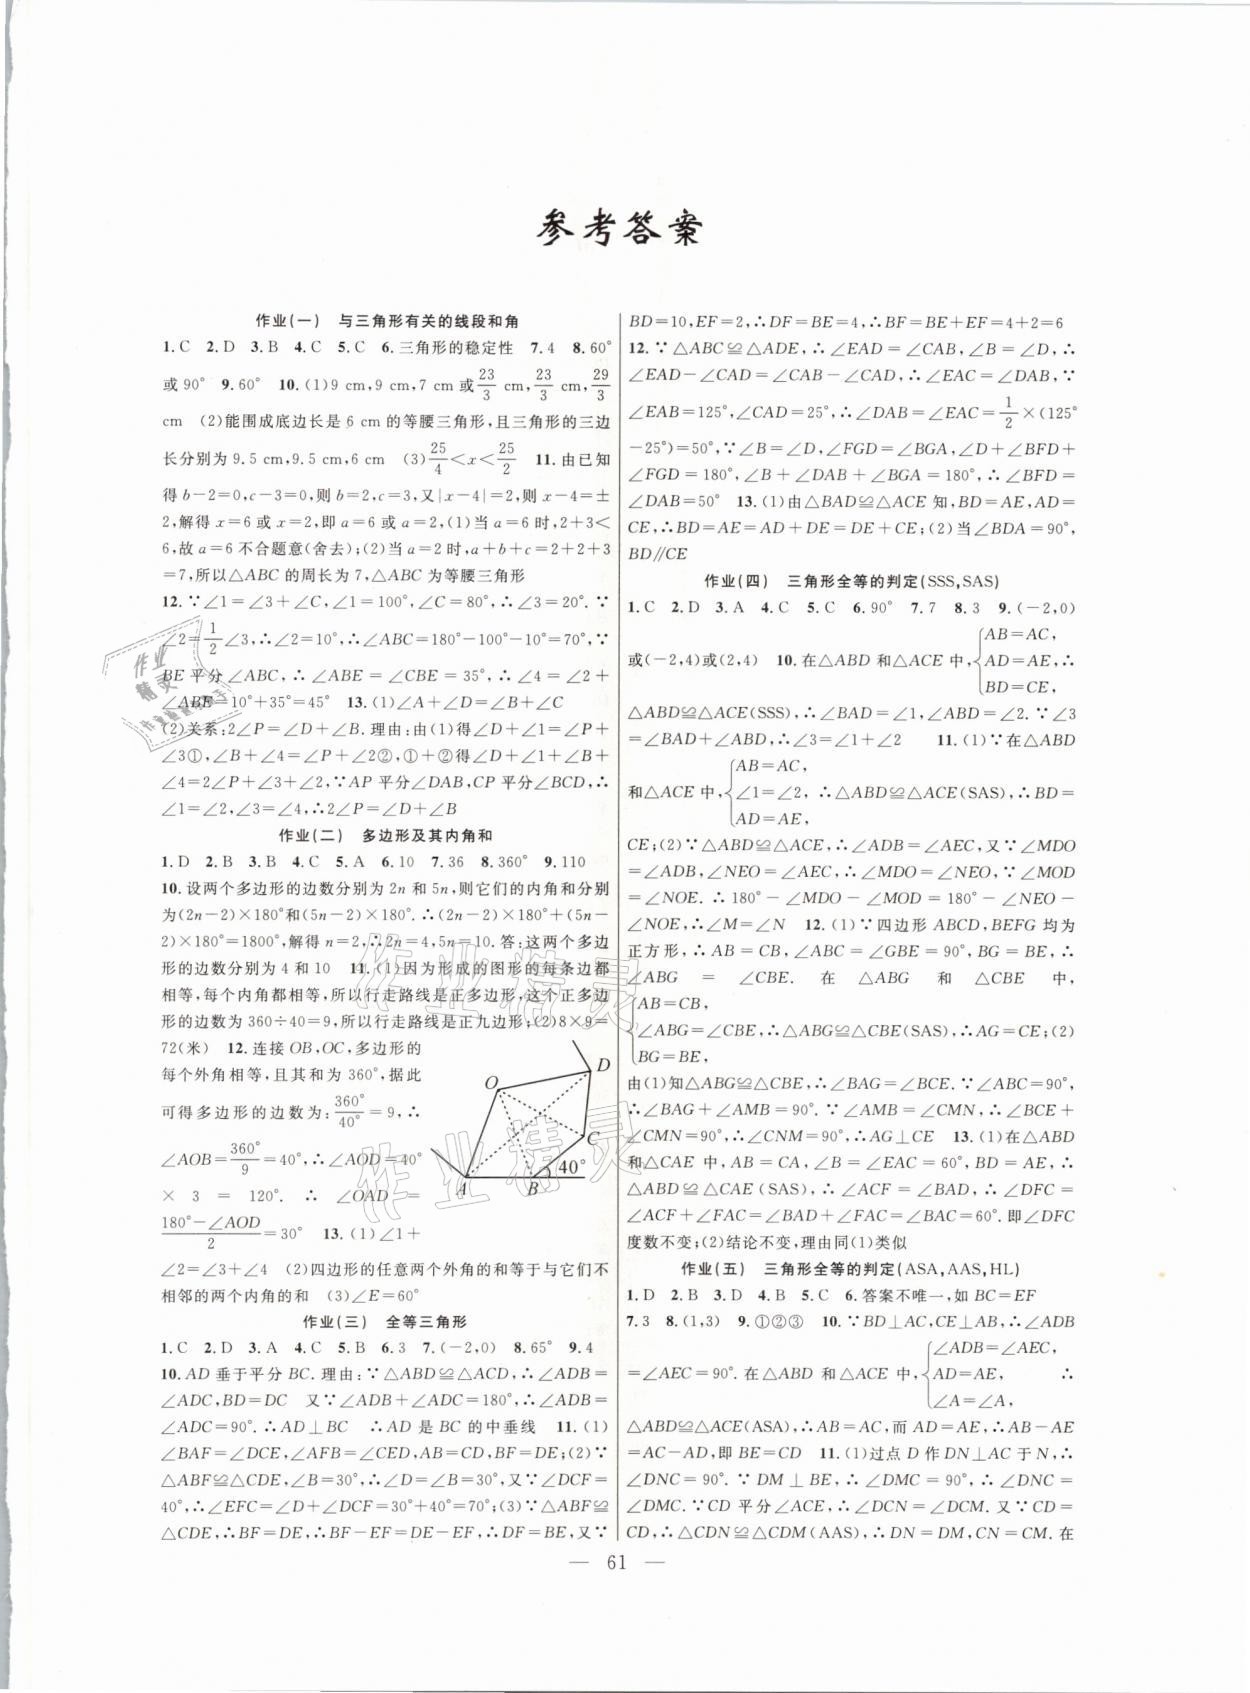 参考答案
作业(一) 与三角形有关的线段和角
1.C 2.D 3.B 4.C 5.C 6.三角形的稳定性 7.4 8.60°
或90° 9.60° 10.(1)9 cm,9 cm,7 cm或23/3 cm,23/3 cm,29/3
cm (2)能围成底边长是6 cm的等腰三角形,且三角形的三边
长分别为9.5 cm,9.5 cm,6 cm (3)25/4<x<25/2 11.由已知
得b-2=0,c-3=0,则b=2,c=3,又|x-4|=2,则x-4=±
2,解得x=6或x=2,即a=6或a=2,(1)当a=6时,2+3<
6,故a=6不合题意(舍去);(2)当a=2时,a+b+c=2+2+3
=7,所以△ABC的周长为7,△ABC为等腰三角形
12.∵∠1=∠3+∠C,∠1=100°,∠C=80°,∴∠3=20°.∵
∠2=1/2∠3,∴∠2=10°,∴∠ABC=180°-100°-10°=70°,∵
BE平分∠ABC,∴∠ABE=∠CBE=35°,∴∠4=∠2+
∠ABE=10°+35°=45° 13.(1)∠A+∠D=∠B+∠C
(2)关系:2∠P=∠D+∠B.理由:由(1)得∠D+∠1=∠P+
∠3①,∠B+∠4=∠P+∠2②,①+②得∠D+∠1+∠B+
∠4=2∠P+∠3+∠2,∵AP平分∠DAB,CP平分∠BCD,∴
∠1=∠2,∠3=∠4,∴2∠P=∠D+∠B
作业(二) 多边形及其内角和
1.D 2.B 3.B 4.C 5.A 6.10 7.36 8.360° 9.110
10.设两个多边形的边数分别为2n和5n,则它们的内角和分别
为(2n-2)×180°和(5n-2)×180°.∴(2n-2)×180°+(5n-
2)×180°=1800°,解得n=2,∴2n=4,5n=10.答:这两个多边
形的边数分别为4和10 11.(1)因为形成的图形的每条边都
相等,每个内角都相等,所以行走路线是正多边形,这个正多边
形的边数为360÷40=9,所以行走路线是正九边形;(2)8×9=
72(米) 12.连接OB,OC,多边形的
每个外角相等,且其和为360°,据此
可得多边形的边数为:360°/40°=9,∴
∠AOB=360°/9=40°,∴∠AOD=40°
×3=120°.∴∠OAD=
180°-∠AOD/2=30° 13.(1)∠1+
O
D
C
A
B
40°
∠2=∠3+∠4 (2)四边形的任意两个外角的和等于与它们不
相邻的两个内角的和 (3)∠E=60°
作业(三) 全等三角形
1.C 2.D 3.A 4.C 5.B 6.3 7.(-2,0) 8.65° 9.4
10.AD垂于平分BC.理由:∵△ABD≌△ACD,∴∠ADB=
∠ADC,BD=DC 又∵∠ADB+∠ADC=180°,∴∠ADB=
∠ADC=90°.∴AD⊥BC ∴AD是BC的中垂线 11.(1)
∠BAF=∠DCE,∠AFB=∠CED,AB=CD,BF=DE;(2)∵
△ABF≌△CDE,∠B=30°,∴∠D=∠B=30°,又∵∠DCF=
40°,∴∠EFC=∠D+∠DCF=30°+40°=70°;(3)∵△ABF≌
△CDE,∴BF=DE,∴BF-EF=DE-EF,∴DF=BE,又∵
BD=10,EF=2,∴DF=BE=4,∴BF=BE+EF=4+2=6
12.∵△ABC≌△ADE,∴∠EAD=∠CAB,∠B=∠D,∴
∠EAD-∠CAD=∠CAB-∠CAD,∴∠EAC=∠DAB,∵
∠EAB=125°,∠CAD=25°,∴∠DAB=∠EAC=1/2×(125°
-25°)=50°,∵∠B=∠D,∠FGD=∠BGA,∠D+∠BFD+
∠FGD=180°,∠B+∠DAB+∠BGA=180°,∴∠BFD=
∠DAB=50° 13.(1)由△BAD≌△ACE知,BD=AE,AD=
CE,∴BD=AE=AD+DE=DE+CE;(2)当∠BDA=90°,
BD∥CE
作业(四) 三角形全等的判定(SSS,SAS)
1.C 2.D 3.A 4.C 5.C 6.90° 7.7 8.3 9.(-2,0)
或(-2,4)或(2,4) 10.在△ABD和△ACE中,{AB=AC,
AD=AE,∴
BD=CE,
△ABD≌△ACE(SSS),∴∠BAD=∠1,∠ABD=∠2.∵∠3
=∠BAD+∠ABD,∴∠3=∠1+∠2 11.(1)∵在△ABD
和△ACE中,{AB=AC,
∠1=∠2,∴△ABD≌△ACE(SAS),∴BD=
AD=AE,
CE;(2)∵△ABD≌△ACE,∴∠ADB=∠AEC,又∵∠MDO
=∠ADB,∠NEO=∠AEC,∴∠MDO=∠NEO,∵∠MOD
=∠NOE.∴180°-∠MDO-∠MOD=180°-∠NEO-
∠NOE,∴∠M=∠N 12.(1)∵四边形ABCD,BEFG均为
正方形,∴AB=CB,∠ABC=∠GBE=90°,BG=BE,∴
∠ABG=∠CBE.在△ABG和△CBE中,
{AB=CB,
∠ABG=∠CBE,∴△ABG≌△CBE(SAS),∴AG=CE;(2)
BG=BE,
由(1)知△ABG≌△CBE,∴∠BAG=∠BCE.∵∠ABC=90°,
∴∠BAG+∠AMB=90°.∵∠AMB=∠CMN,∴∠BCE+
∠CMN=90°,∴∠CNM=90°,∴AG⊥CE 13.(1)在△ABD
和△CAE中,AB=CA,∠B=∠EAC=60°,BD=AE,∴
△ABD≌△CAE(SAS),∴∠ACF=∠BAD,∴∠DFC=
∠ACF+∠FAC=∠BAD+∠FAC=∠BAC=60°.即∠DFC
度数不变;(2)结论不变,理由同(1)类似
作业(五) 三角形全等的判定(ASA,AAS,HL)
1.D 2.B 3.D 4.B 5.C 6.答案不唯一,如BC=EF
7.3 8.(1,3) 9.①②③ 10.∵BD⊥AC,CE⊥AB,∴∠ADB
=∠AEC=90°.在△ABD和△ACE中,{∠ADB=∠AEC,
AD=AE,∴
∠A=∠A,
△ABD≌△ACE(ASA),∴AB=AC,而AD=AE,∴AB-AE
=AC-AD,即BE=CD 11.(1)过点D作DN⊥AC于N,∴
∠DNC=90°.∵DM⊥BE,∴∠DMC=90°,∴∠DNC=
∠DMC.∵CD平分∠ACE,∴∠DCN=∠DCM.又∵CD=
CD,∴△CDN≌△CDM(AAS),∴DN=DM,CN=CM.在
— 61 —
作业精灵
作业精灵
作业
精灵